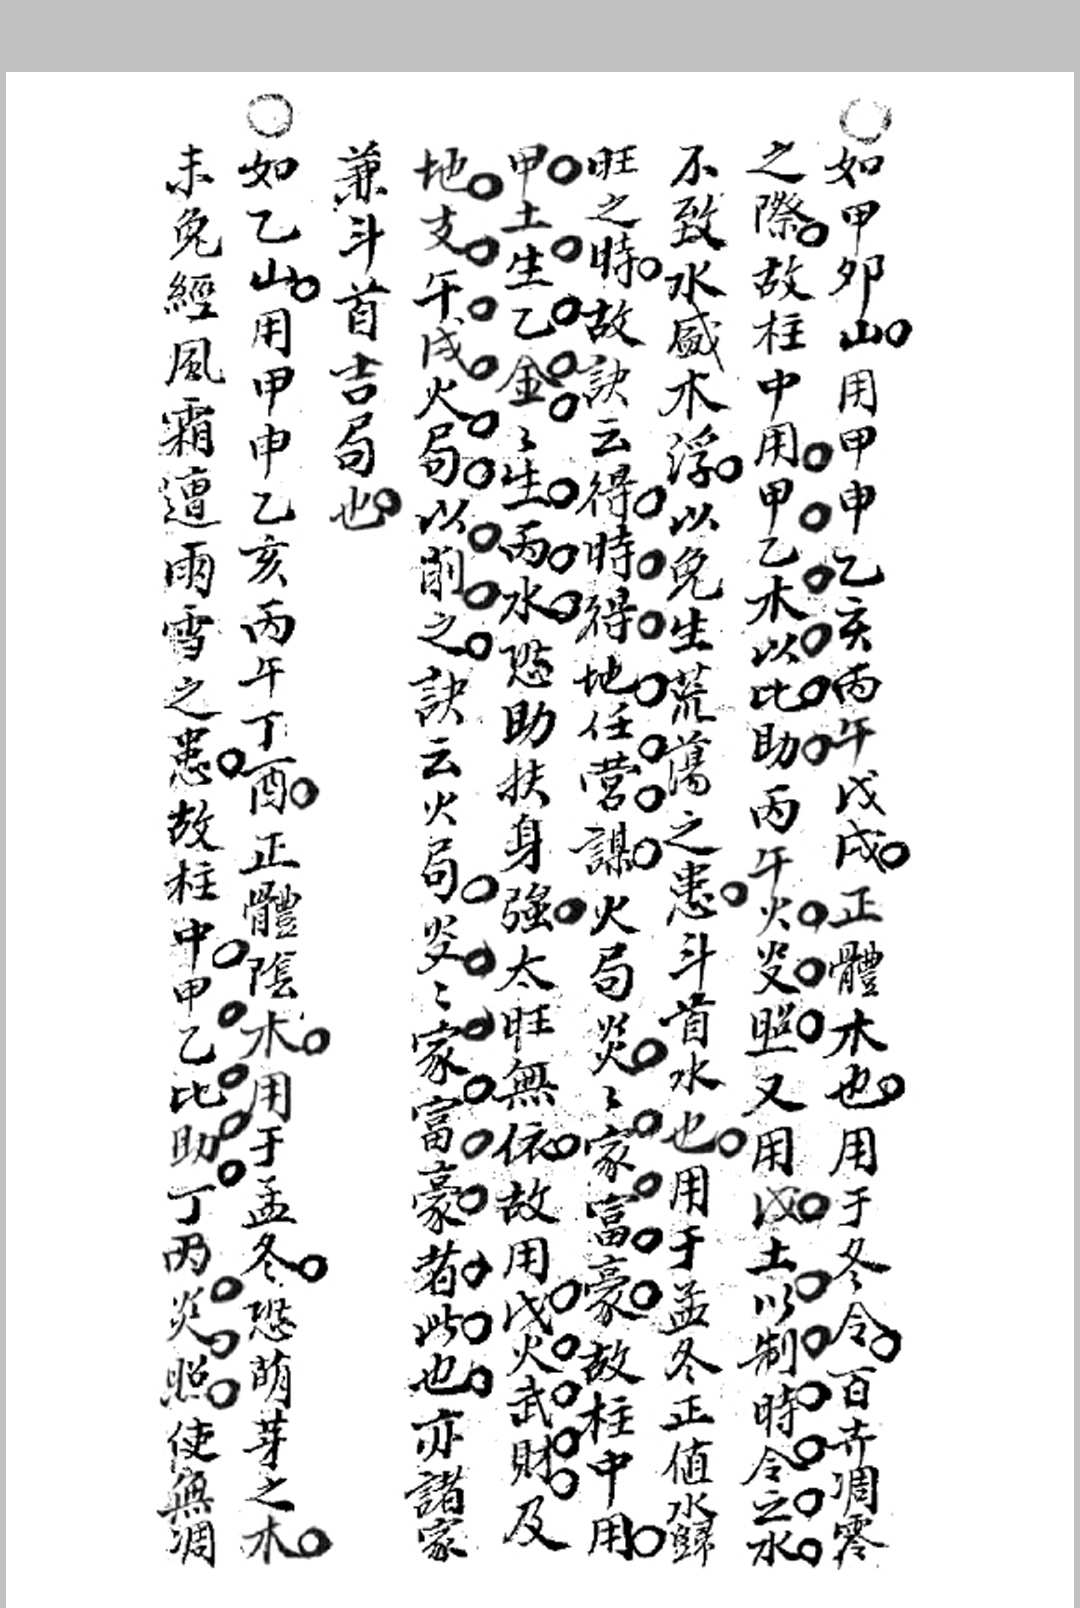 如甲卯山用甲申乙亥丙午戊戌正體木也用于冬令百卉凋零
之際故柱中用甲乙木以比助丙午火炎照又用戊土以制時令之水
不致水盛木浮以免生荒蕩之患斗首水也用于孟冬正值水歸
旺之時故訣云得時得地任營謀火局炎〻家富豪故柱中用
甲土生乙金〻生丙水恐助扶身強太旺無依故用戊火武財及
地支午戌火局以削之訣云火局炎〻家富豪者此也亦諸家
兼斗首吉局也
如乙山用甲申乙亥丙午丁酉正體陰木用于孟冬恐萌芽之木
未免經風霜遭雨雪之患故柱中甲乙比助丁丙炎照使無凋